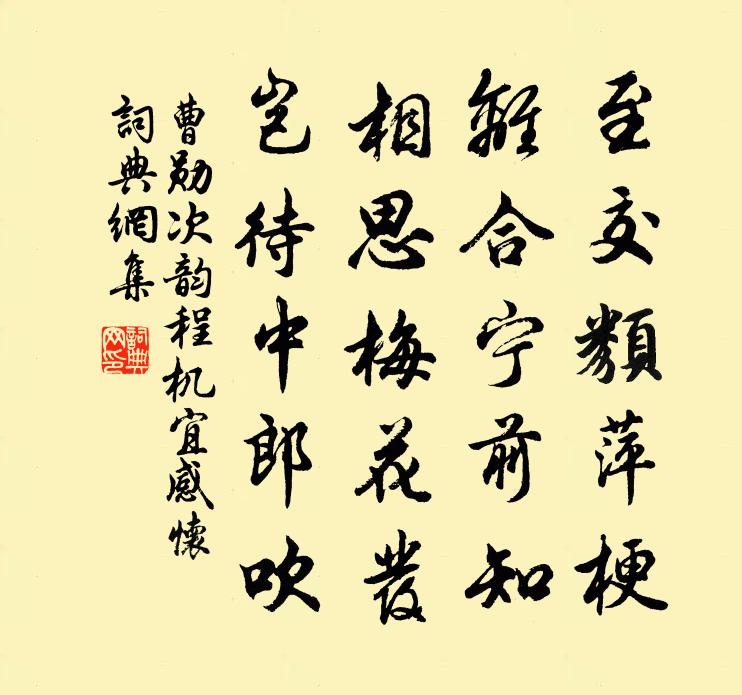 至交類萍梗
離合宁前知
相思梅花發
岂待中郎吹
曹勋次韵程机宜感懷
詞典網集
詞典
网印